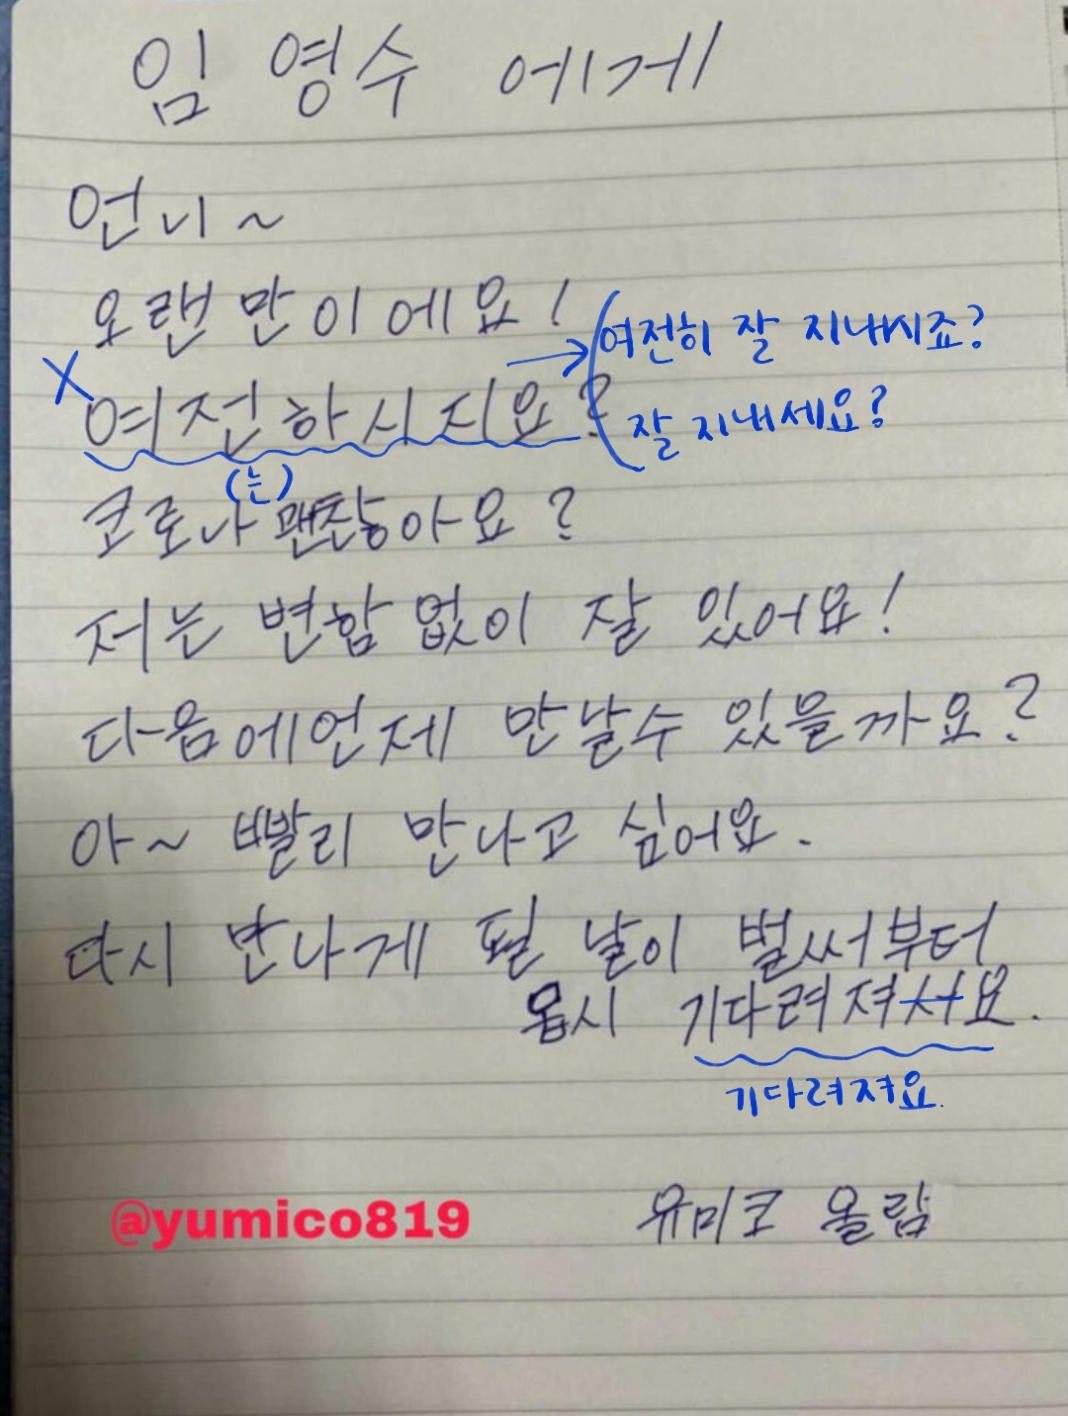 임 영수 에게
언니~
오랜만이에요!
여전하시지요?
→ 여전히 잘 지내시죠?
잘 지내세요?
X
(는)
코로나 괜찮아요?
저는 변함없이 잘 있어요!
다음에언제 만날수 있을까요?
아~ 빨리 만나고 싶어요.
다시 만나게 될 날이 벌써부터
몹시 기다려져서요.
기다려져요.
@yumico819
유미코 올림